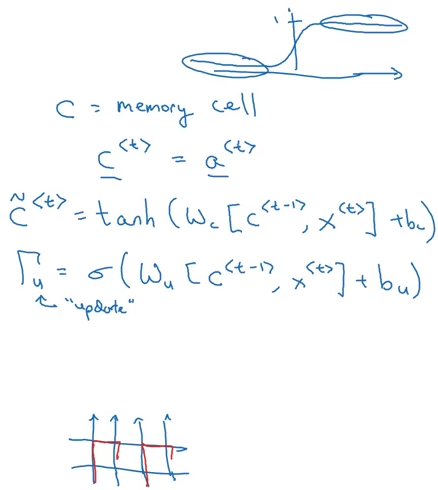 1
C = memory cell
c^{<t>} = a^{<t>}
c̃^{<t>} = tanh (W_c [c^{<t-1>}, x^{<t>}] + b_c)
Γ_u = σ (W_u [c^{<t-1>}, x^{<t>}] + b_u)
"update"